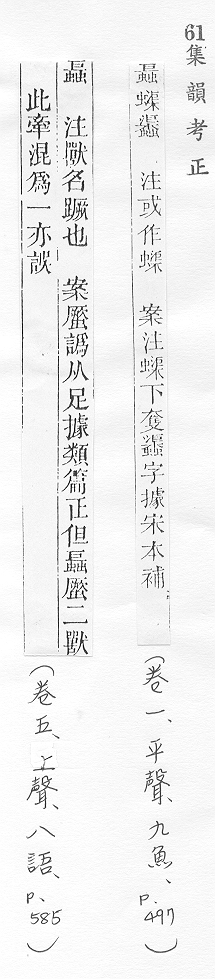 61
集韻考正
注或作蟝　案注蟝下夺字據宋本補
（卷一、平聲、九魚、p.497）
注獸名蹶也　案蟨譌从足據類篇正但蟨二獸
此牽混爲一亦誤
（卷五、上聲、八語、p.585）